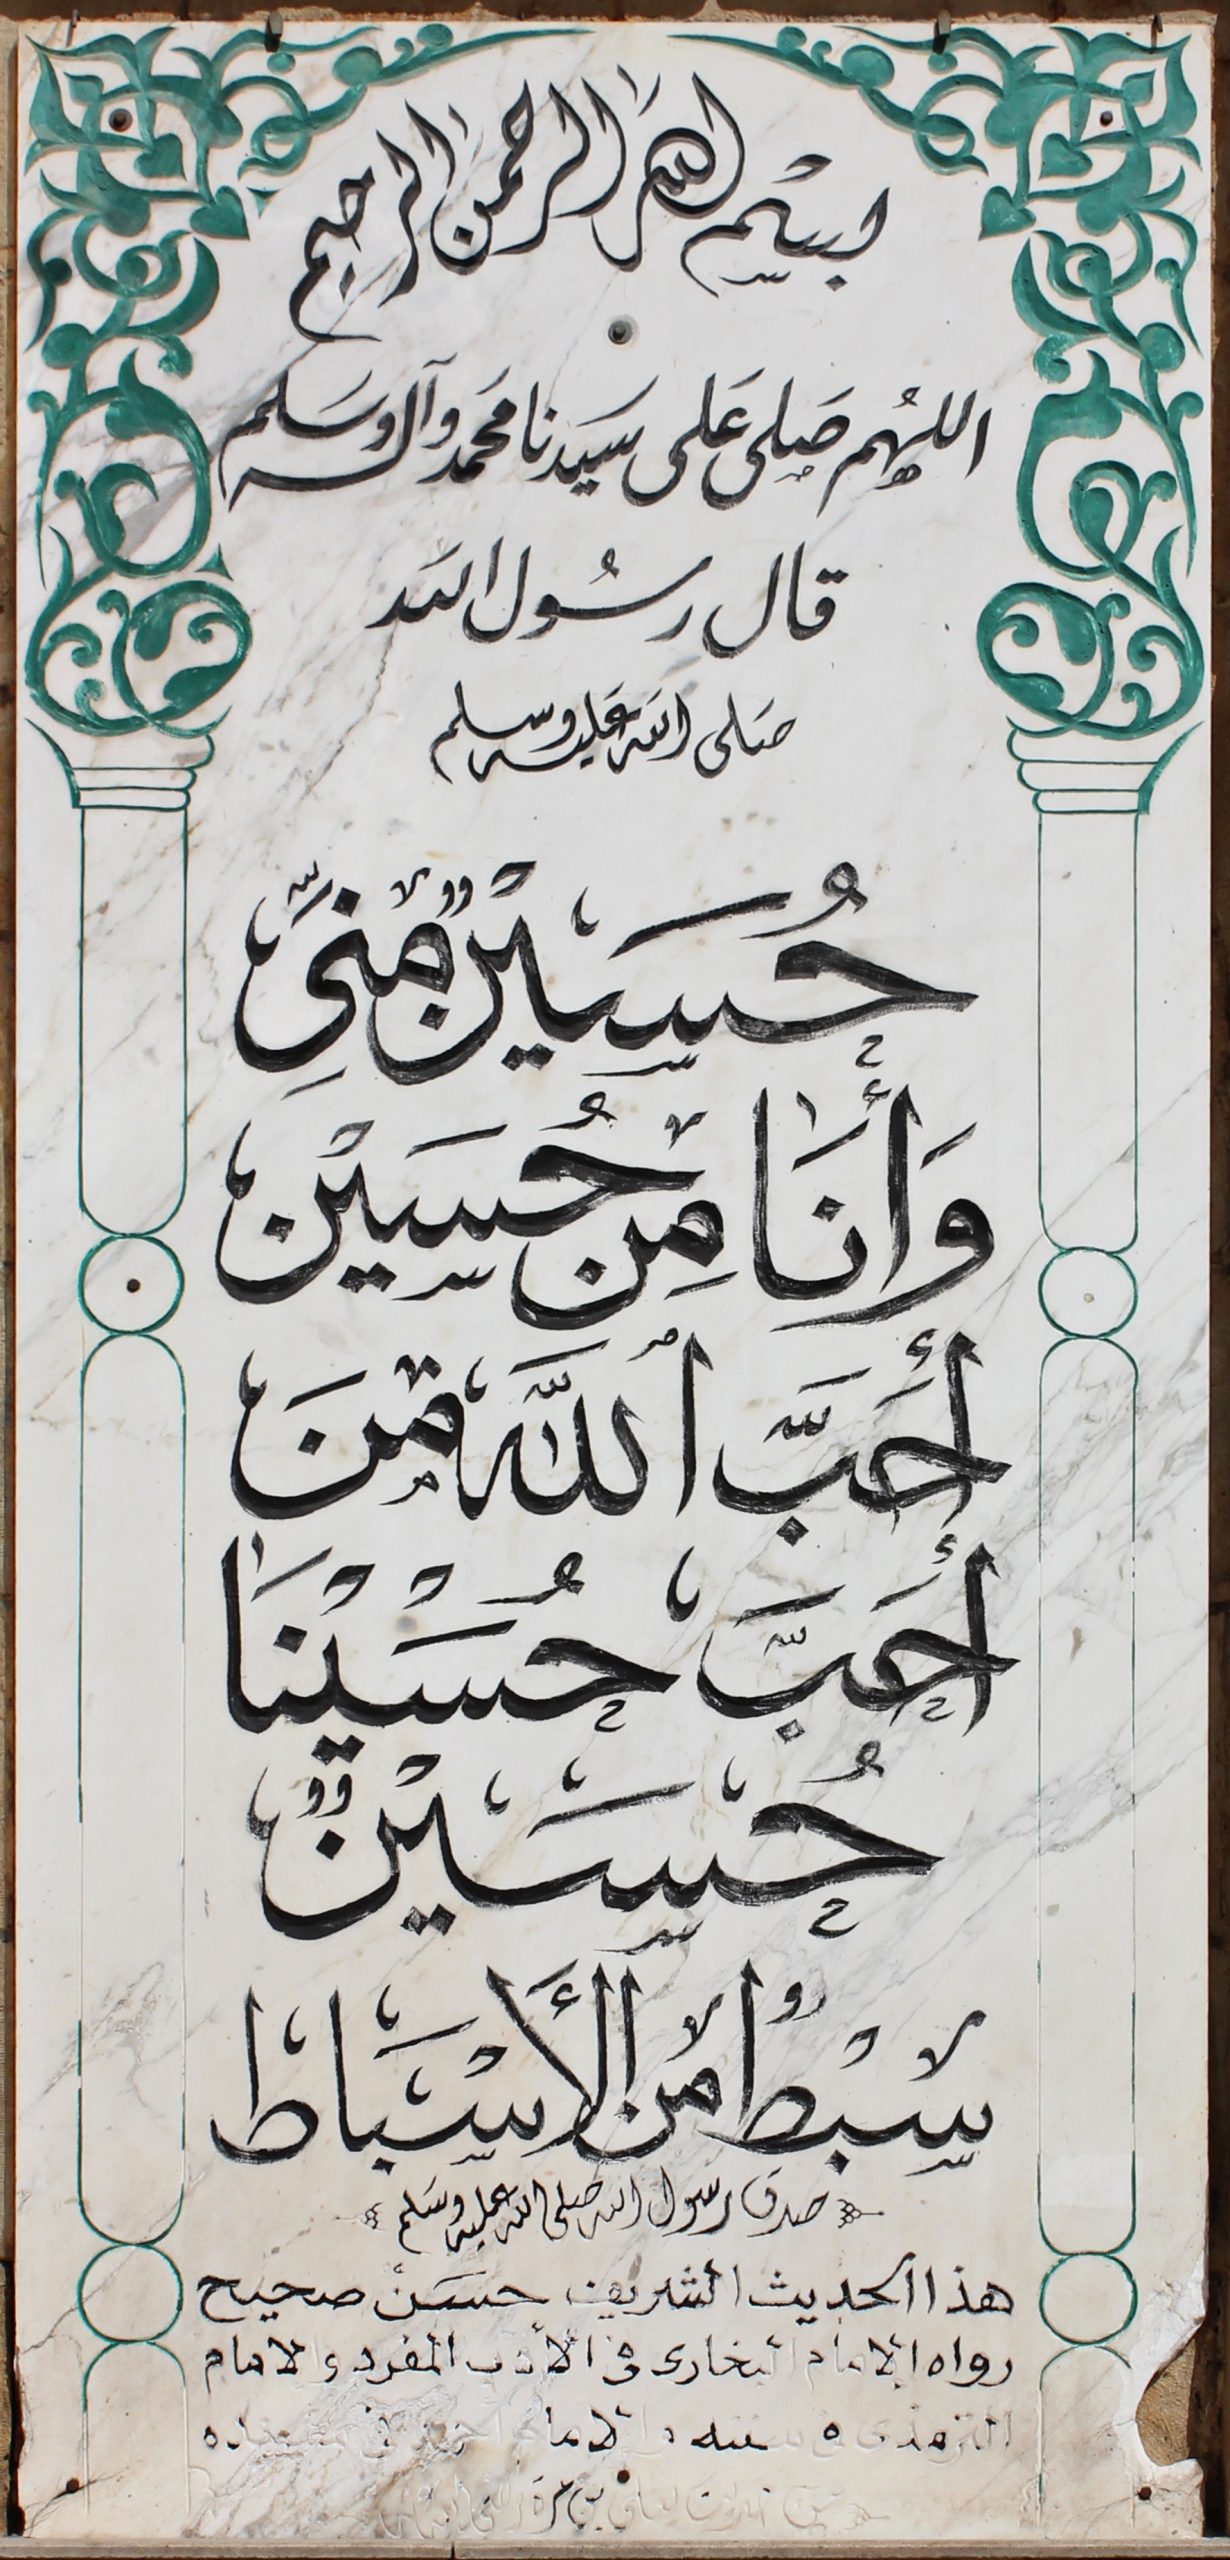 بسم الله الرحمن الرحيم
اللهم صلى على سيدنا محمد وآله وسلم
قال رسول الله
صلى الله عليه وسلم
حُسَيْنٌ مِّنِّي
وَأَنَا مِنْ حُسَيْن
أَحَبَّ ٱللَّه مَنْ
أَحَبَّ حُسَيْنَا
حُسَيْنٌ
سِبْطٌ مِّنَ الْأَسْبَاط
صدق رسول الله صلى الله عليه وسلم
هذا الحديث الشريف حسن صحيح
رواه الإمام البخارى فى الأدب المفرد والامام
الترمذى فى سننه والامام أحمد فى مسنده
بن مرة